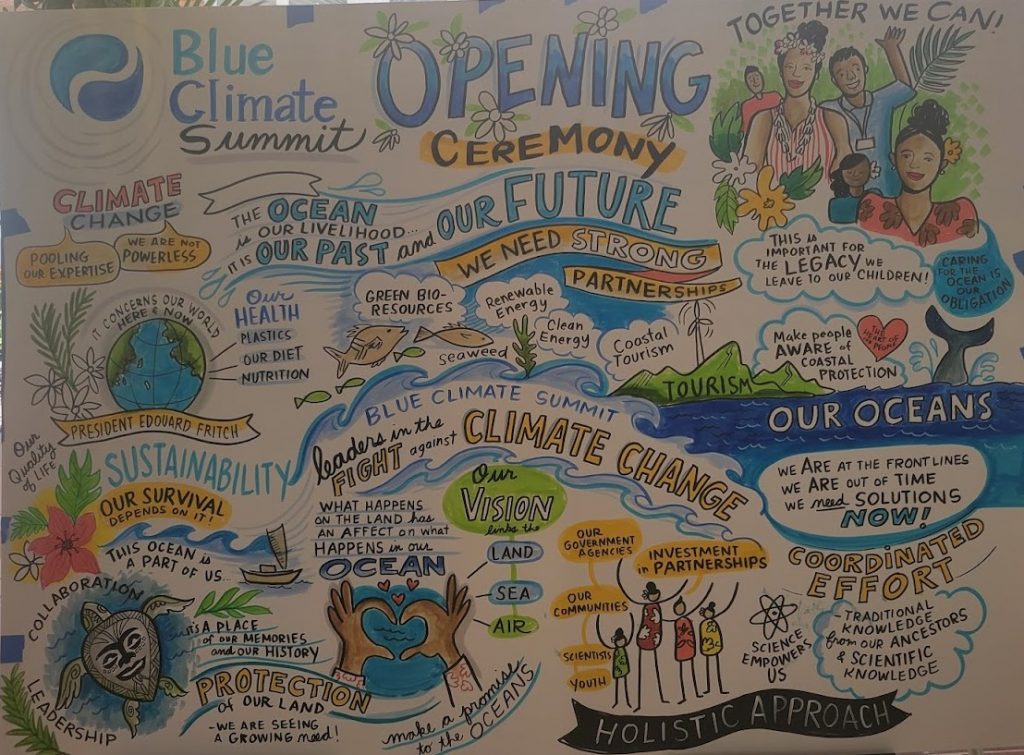 Blue
Climate
Summit
OPENING
CEREMONY
TOGETHER WE CAN!
CLIMATE
CHANGE
POOLING
OUR EXPERTISE
WE ARE NOT
POWERLESS
THE OCEAN
is OUR LIVELIHOOD...
iT iS OUR PAST and OUR FUTURE
WE NEED STRONG
PARTNERSHIPS
THIS IS
IMPORTANT FOR
THE LEGACY WE
LEAVE TO OUR CHILDREN!
CARING
FOR THE
OCEAN IS
OUR
OBLIGATION
IT CONCERNS OUR WORLD
HERE & NOW
Our
HEALTH
PLASTICS
OUR DIET
NUTRITION
PRESIDENT EDOUARD FRITCH
GREEN BIO-
RESOURCES
Renewable
Energy
Clean
Energy
Seaweed
Coastal
Tourism
TOURISM
Make people
AWARE of
COASTAL
PROTECTION
THE
HEART OF
THE PEOPLE
OUR OCEANS
BLUE CLIMATE SUMMIT
leaders in the
FIGHT against
CLIMATE CHANGE
Our
Quality
of LIFE
SUSTAINABILITY
OUR SURVIVAL
DEPENDS ON IT!
THIS OCEAN is
A PART OF US...
WHAT HAPPENS
ON THE LAND HAS
AN AFFECT ON WHAT
HAPPENS in OUR
OCEAN
Our
VISION
links the
LAND
SEA
AIR
WE ARE AT THE FRONT LINES
WE ARE OUT OF TIME
WE need SOLUTIONS
NOW!
COORDINATED
EFFORT
- TRADITIONAL
KNOWLEDGE
from OUR ANCESTORS
& SCIENTIFIC
KNOWLEDGE
OUR
GOVERNMENT
AGENCIES
INVESTMENT
in PARTNERSHIPS
OUR
COMMUNITIES
SCIENTISTS
YOUTH
SCIENCE
EMPOWERS
US
HOLISTIC APPROACH
COLLABORATION
LEADERSHIP
A PLACE
of OUR MEMORIES
and OUR HISTORY
PROTECTION
of OUR LAND
- WE ARE SEEING
A GROWING need!
make a promise
to the OCEANS